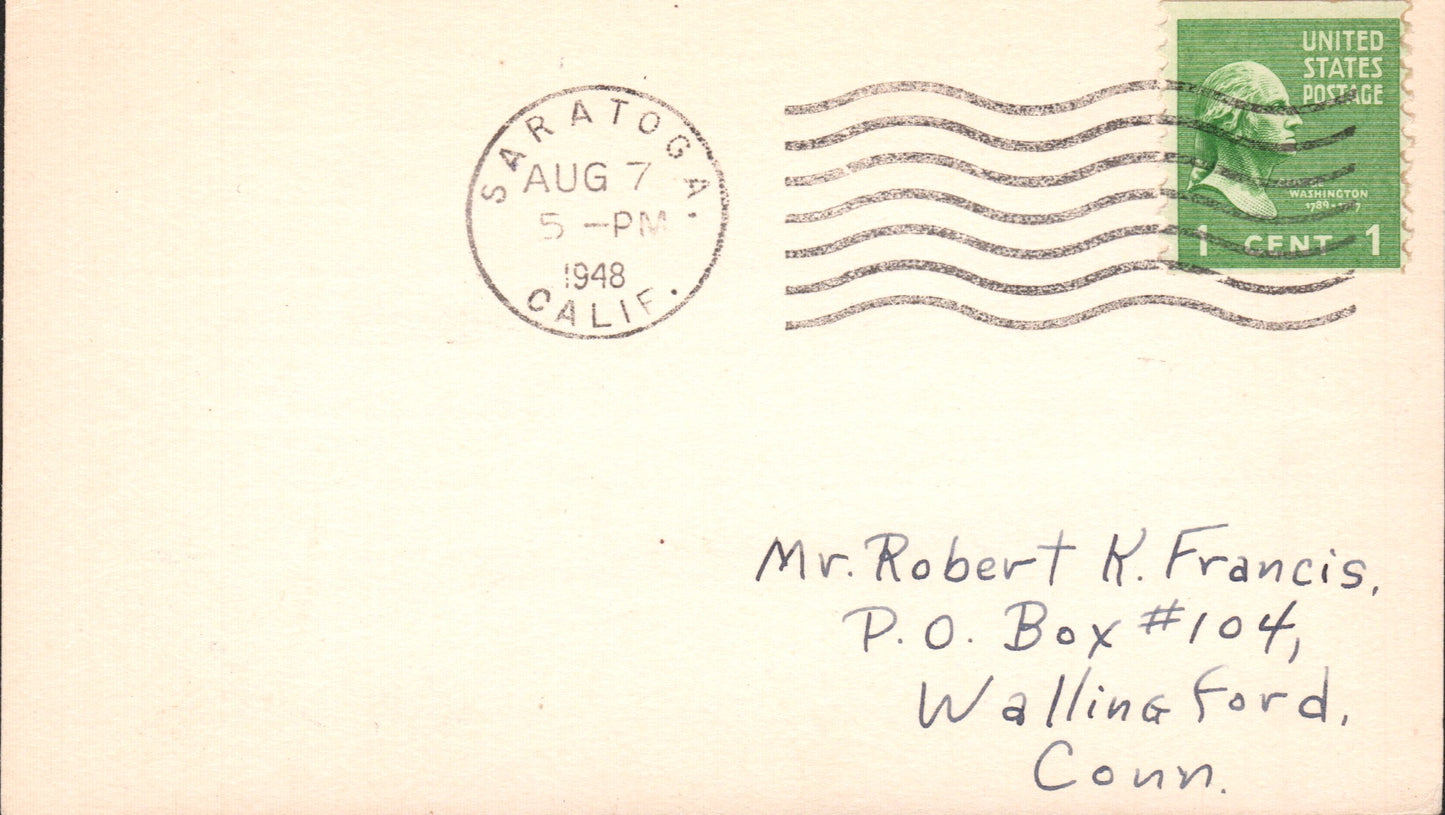 SARATOGA.
AUG 7
5 -PM
1948
CALIF.
UNITED
STATES
POSTAGE
WASHINGTON
1789-1797
1 CENT 1
Mr. Robert K. Francis,
P.O. Box #104,
Wallingford,
Conn.